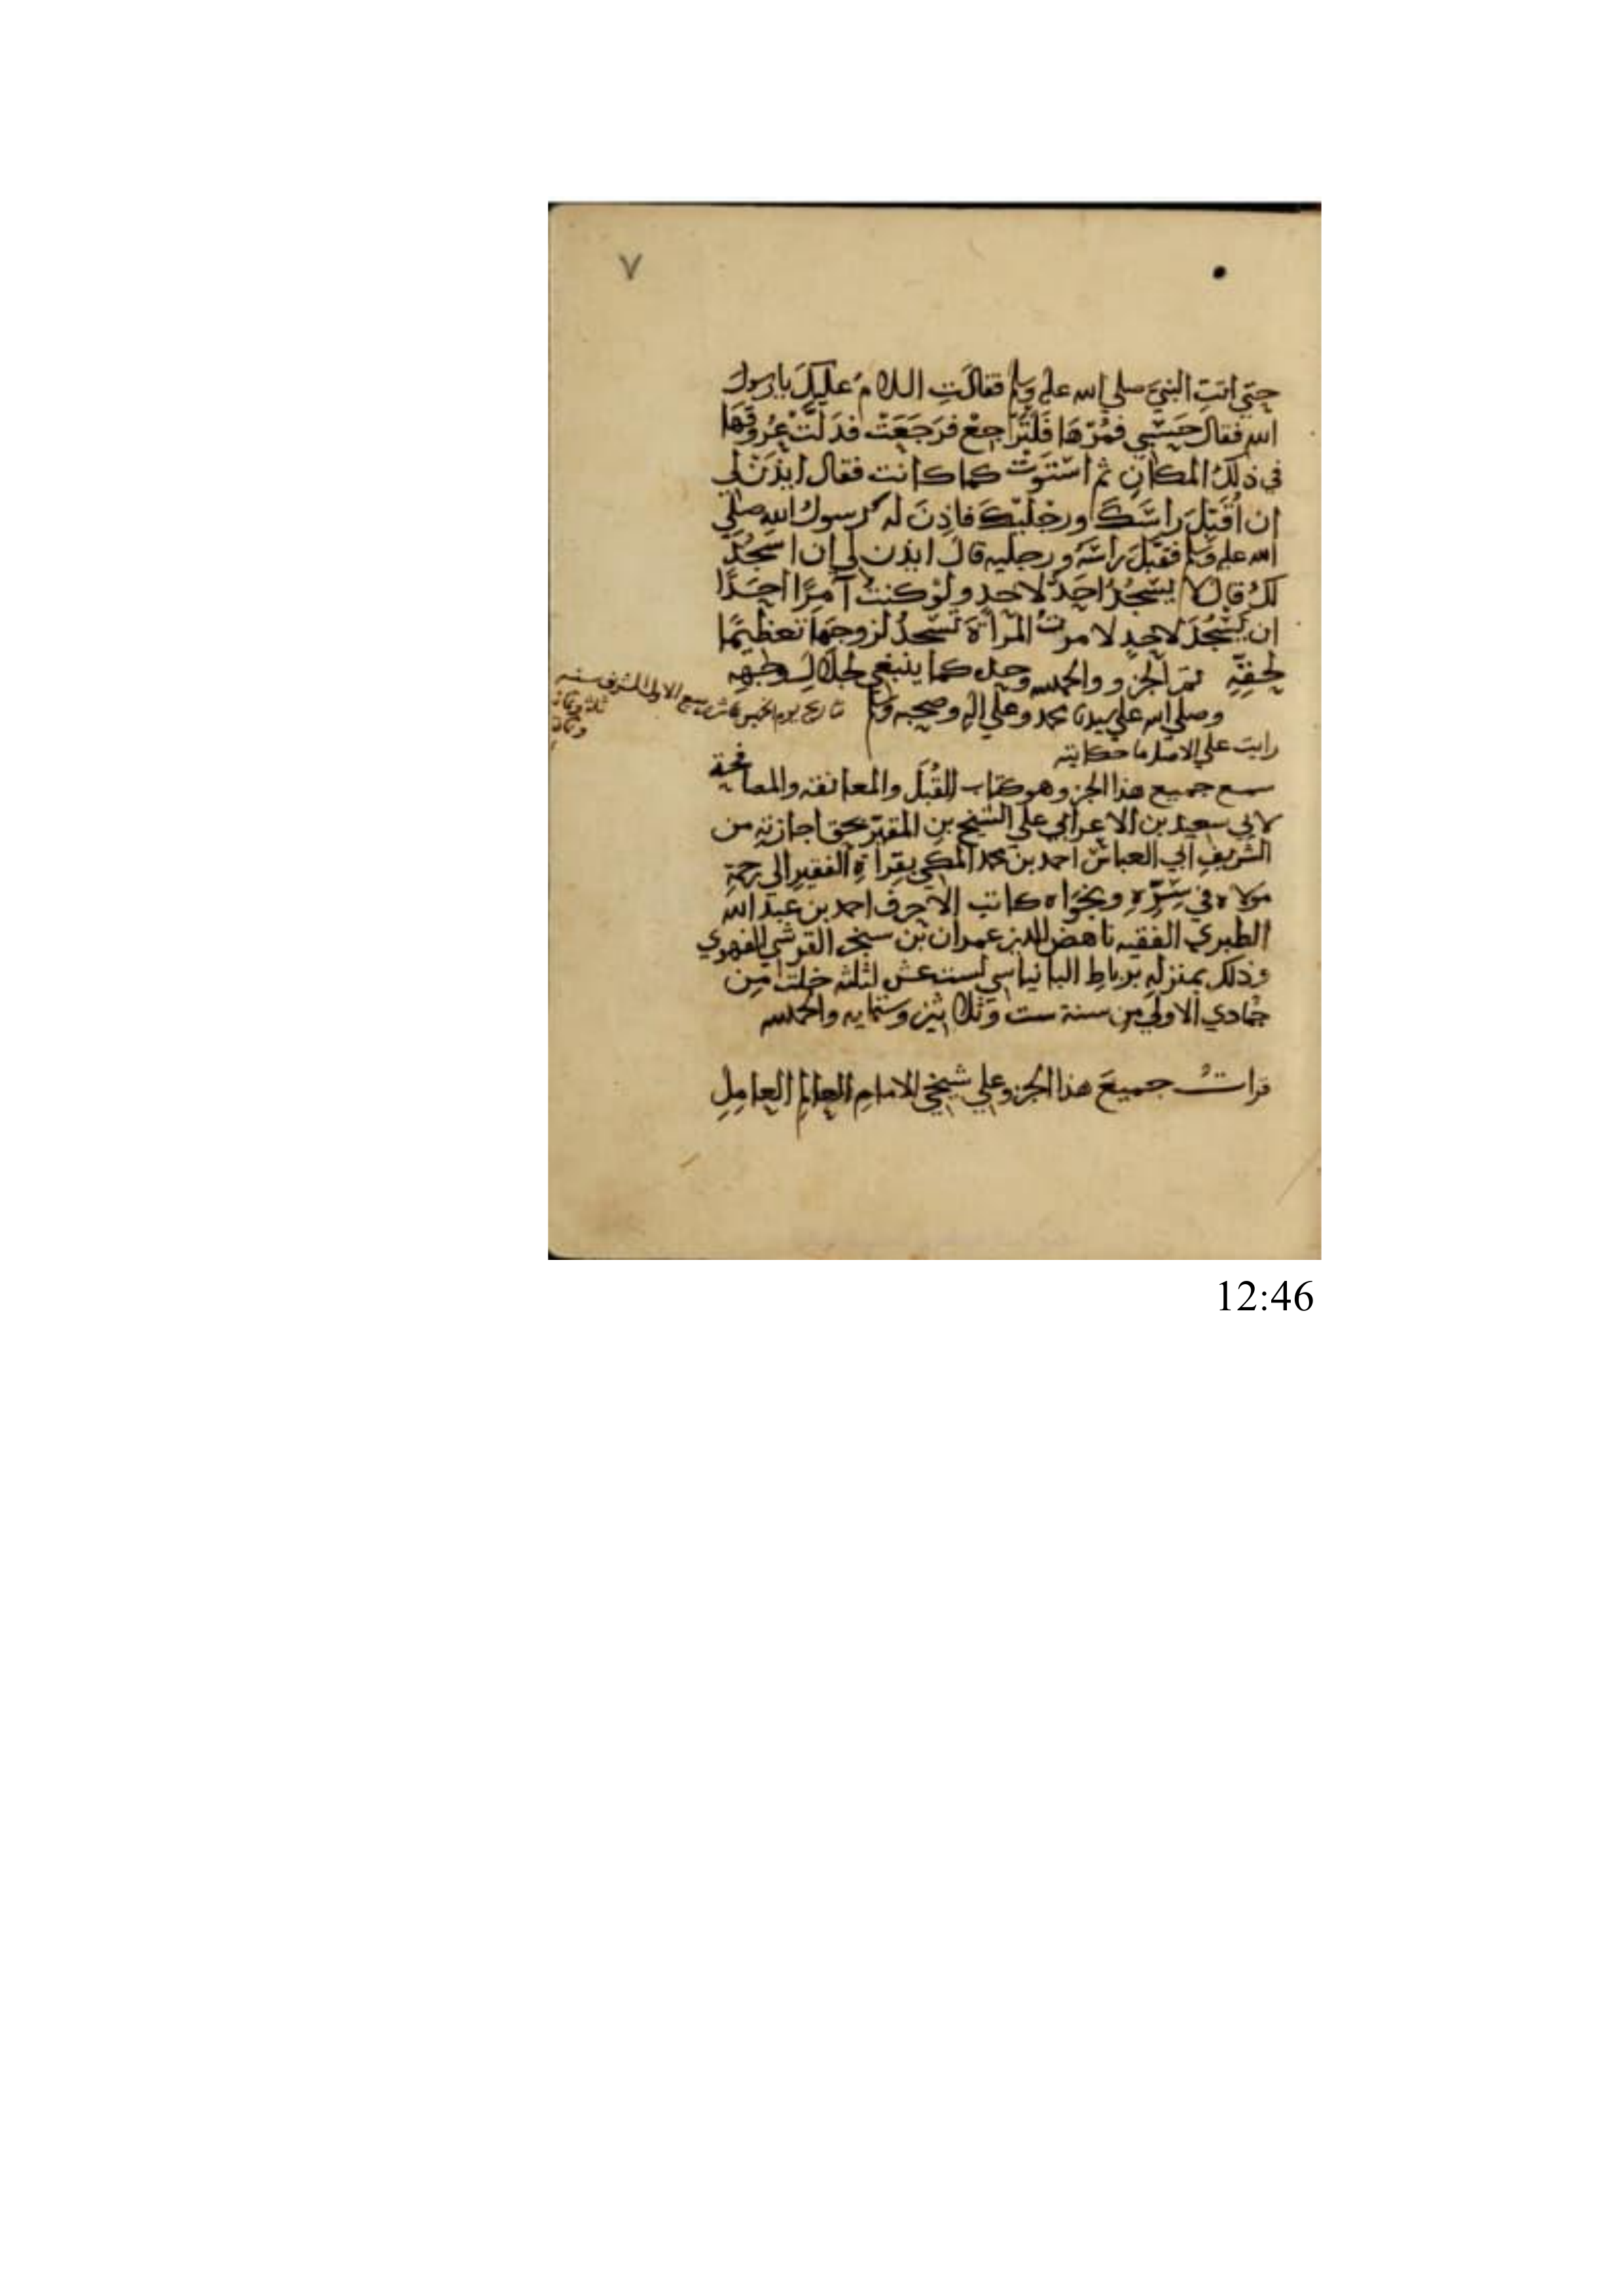 ٧
حتى اتت النبي صلى الله عليه وسلم فقالت السلام عليك يا رسول
الله فقال حسبي فمُرْهَا فَلْتَراجِعْ فرَجَعَتْ فدَلَّتْ عُرُوقَهَا
في ذلك المكانِ ثم استَوَتْ كما كانت فقال ايذن لي
ان اُقَبِّلَ راسَكَ ورجْلَيْكَ فاذِنَ له رسول الله صلى
الله عليه وسلم فقَبَّلَ راسَهُ ورجليه قال ايذن لي ان اسجُدَ
لك قال لا يسْجُدُ احَدٌ لاحدٍ ولَوْ كنتُ آمِرًا احَدًا
ان يَسْجُدَ لاحدٍ لامرتُ المرْاَةَ تسْجدُ لزوجِهَا تعظيمًا
لحقِّهِ تم الجزو والحمد لله وحده كما ينبغي لجلال وجهه
وصلى الله على سيدنا محمد وعلى اله وصحبه وسلم
تاريخ يوم الخميس عاشر ربيع الاول الشريف سنة
رايت على الاصل ما حكايته
سمع جميع هذا الجزو وهو كتاب القُبَل والمعانقه والمصافحة
لابي سعيد بن الاعرابي على الشيخ بن المقيّر بحق اجازته من
الشريف ابي العباس احمد بن محمد المكي بقراةِ الفقيرِ الى رحمةِ
مولاه في سِرِّهِ ونجواه كاتب الاحرف احمد بن عبد الله
الطبري الفقيه ناهض الدين عمران بن سنجر القرشي الفهري
وذلك بمنزلهِ برباطِ البانياسي لست عشر لثلثه خلت من
جُمادي الاولى من سنة ست وثلاثين وستمايه والحمد لله
قراتُ جميعَ هذا الجزو على شيخي الامامِ العالمِ العامِلِ
12:46